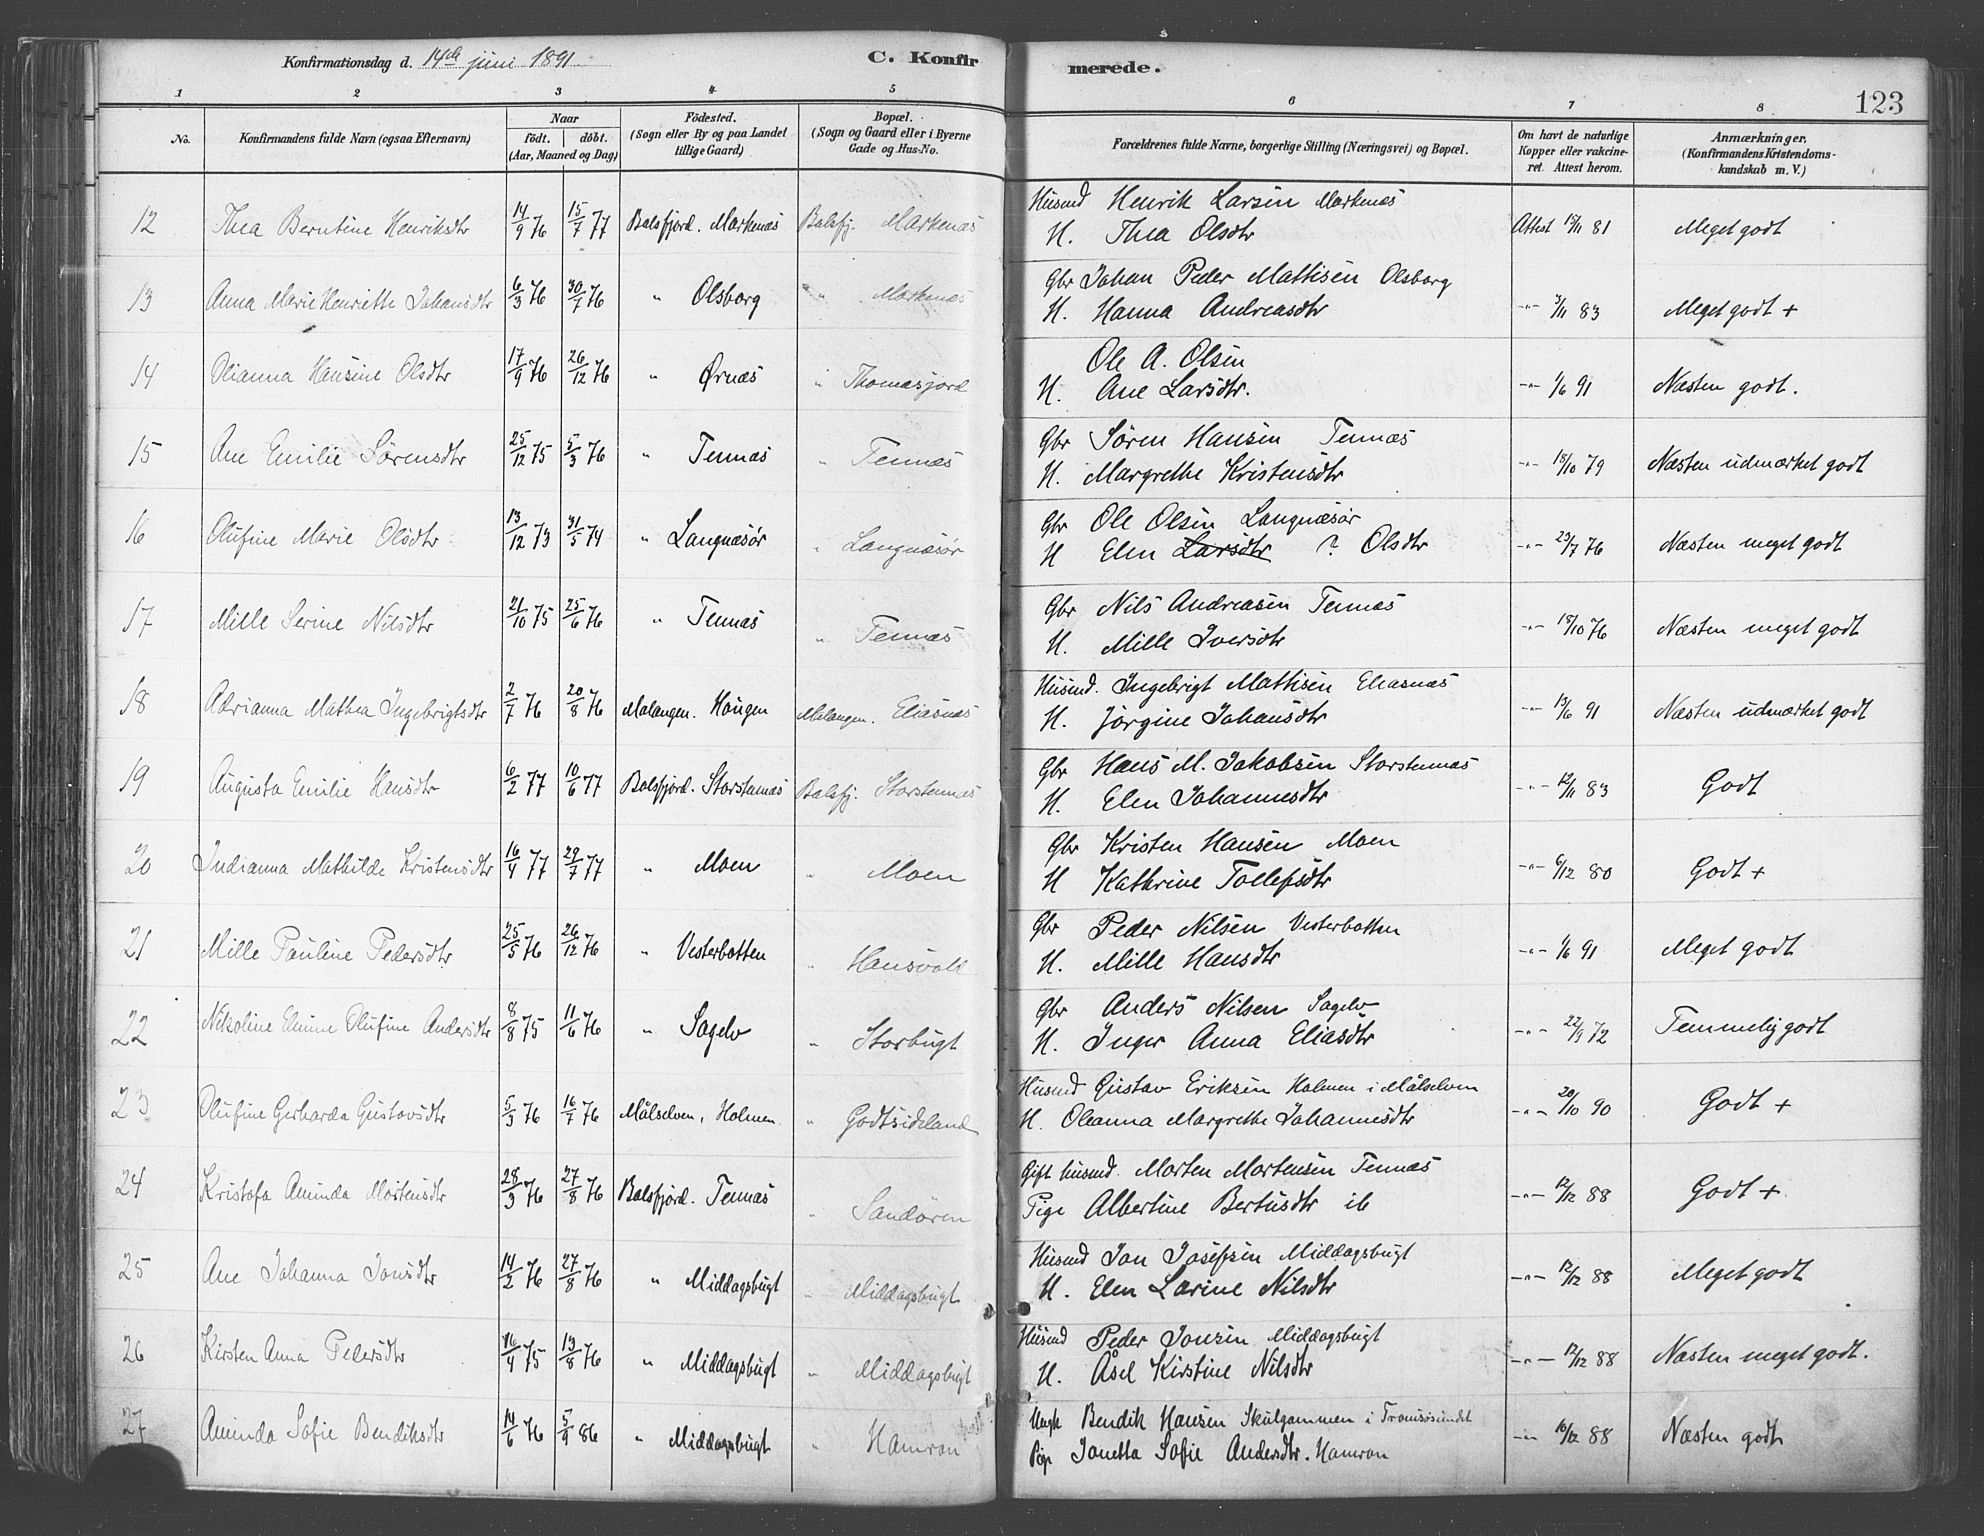 Konfirmationsdag d. 14de juni 1891. C. Konfirmerede. 123
1 2 3 4 5 6 7 8
No. Konfirmandens fulde Navn (ogsaa Efternavn) Naar født. døbt. (Aar, Maaned og Dag) Fødested. (Sogn eller By og paa Landet tillige Gaard) Bopæl. (Sogn og Gaard eller i Byerne Gade og Hus-No. Forældrenes fulde Navne, borgerlige Stilling (Næringsvei) og Bopæl. Om havt de naturlige Kopper eller vakcineret. Attest herom. Anmærkninger. (Konfirmandens Kristendomskundskab m. V.)
12 Thea Berntine Henriksdtr 14/9 76 15/7 77 Balsfjord. Markenæs Balsfj. Markenæs Husmd Henrik Larsen Markenæs
H. Thea Olsdtr Attest 15/11 81 Meget godt
13 Anna Marie Henriette Johansdtr 6/3 76 30/7 76 " Olsborg " Markenæs Gbr Johan Peder Mattisen Olsborg
H. Hanna Andreasdtr -"- 3/11 83 Meget godt +
14 Olianna Hansine Olsdtr 17/9 76 26/12 76 " Ørnæs " Thomasjord Ole A. Olsen
H. Ane Larsdtr. -"- 1/6 91 Næsten godt.
15 Ane Emilie Sørensdtr 25/12 75 5/3 76 " Tennæs " Tennæs Gbr Søren Hansen Tennæs
H. Margrethe Kristensdtr -"- 18/10 79 Næsten udmærket godt
16 Olufine Marie Olsdtr 13/12 73 31/5 74 " Langnæsør " Langnæsør Gbr Ole Olsen Langnæsør
H Elen Larsdtr ? Olsdtr -"- 29/7 76 Næsten meget godt
17 Mille Serine Nilsdtr 21/10 75 25/6 76 " Tennæs " Tennæs Gbr Nils Andreasen Tennæs
H. Mille Iversdtr -"- 18/10 76 Næsten meget godt
18 Adrianna Mathea Ingebrigtsdtr 2/7 76 20/8 76 Malangen. Haugen Malangen. Eliasnæs Husmd. Ingebrigt Mattisen Eliasnæs
H. Jørgine Johansdtr -"- 13/6 91 Næsten udmærket godt
19 Augusta Emilie Hansdtr 6/2 77 10/6 77 Balsfjord. Storstennæs Balsfj. Storstennæs Gbr Hans M. Jakobsen Storstennæs
H. Elen Johannesdtr -"- 12/11 83 Godt
20 Indianna Mathilde Kristensdtr 16/4 77 29/7 77 " Moen " Moen Gbr Kristen Hansen Moen
H Kathrine Tollefsdtr -"- 6/12 80 Godt +
21 Mille Pauline Pedersdtr 25/5 76 26/12 76 " Vesterbotten " Hansvold Gbr Peder Nilsen Vesterbotten
H. Mille Hansdtr -"- 1/6 91 Meget godt
22 Nikoline Emme Olufine Andersdtr 8/8 75 11/6 76 " Sagelv " Storbugt Gbr Anders Nilsen Sagelv
H. Inger Anna Eliasdtr -"- 22/9 72 Temmelig godt
23 Olufine Gerharda Gustavsdtr 5/3 76 16/7 76 Målselven, Holmen " Godtsideland Husmd Gustav Eriksen Holmen i Målselven
H. Oleanna Margrethe Johannesdtr -"- 20/10 90 Godt +
24 Kristofa Aminda Mortensdtr 28/3 76 27/8 76 Balsfjord. Tennæs " Sandøren Gift husmd. Morten Mortensen Tennæs
Pige Albertine Bertusdtr ib -"- 12/12 88 Godt +
25 Ane Johanna Jonsdtr 14/2 76 27/8 76 " Middagsbugt " Middagsbugt Husmd Jon Josefsen Middagsbugt
H. Elen Larine Nilsdtr -"- 12/12 88 Meget godt
26 Kirsten Anna Pedersdtr 16/4 75 13/8 76 " Middagsbugt " Middagsbugt Husmd Peder Jonsen Middagsbugt
H. Åsel Kirstine Nilsdtr -"- 12/12 88 Næsten meget godt.
27 Aminda Sofie Bendiksdtr 14/6 76 5/9 86 " Middagsbugt " Hamran Ungk Bendik Hansen Skulgammen i Tromsøsundet
Pige Jonetta Sofie Andersdtr. Hamran -"- 10/12 88 Næsten godt